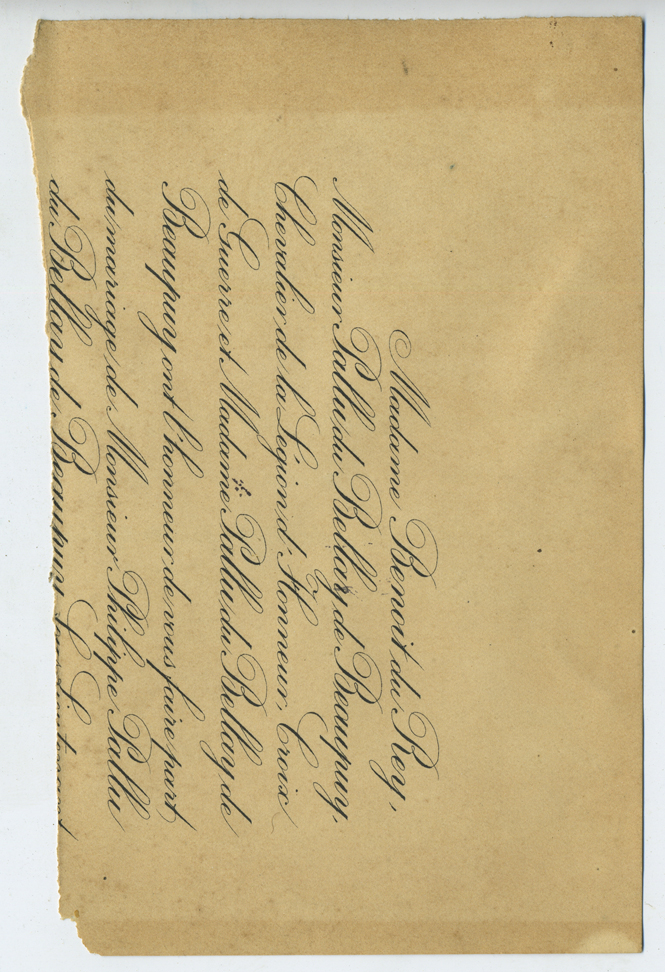 Madame Benoit du Rey,
Monsieur Pallu du Bellay de Beaupuy,
Chevalier de la Légion d'Honneur, Croix
de Guerre et Madame Pallu du Bellay de
Beaupuy ont l'honneur de vous faire part
du mariage de Monsieur Philippe Pallu
du Bellay de Beaupuy, Sous-Lieutenant